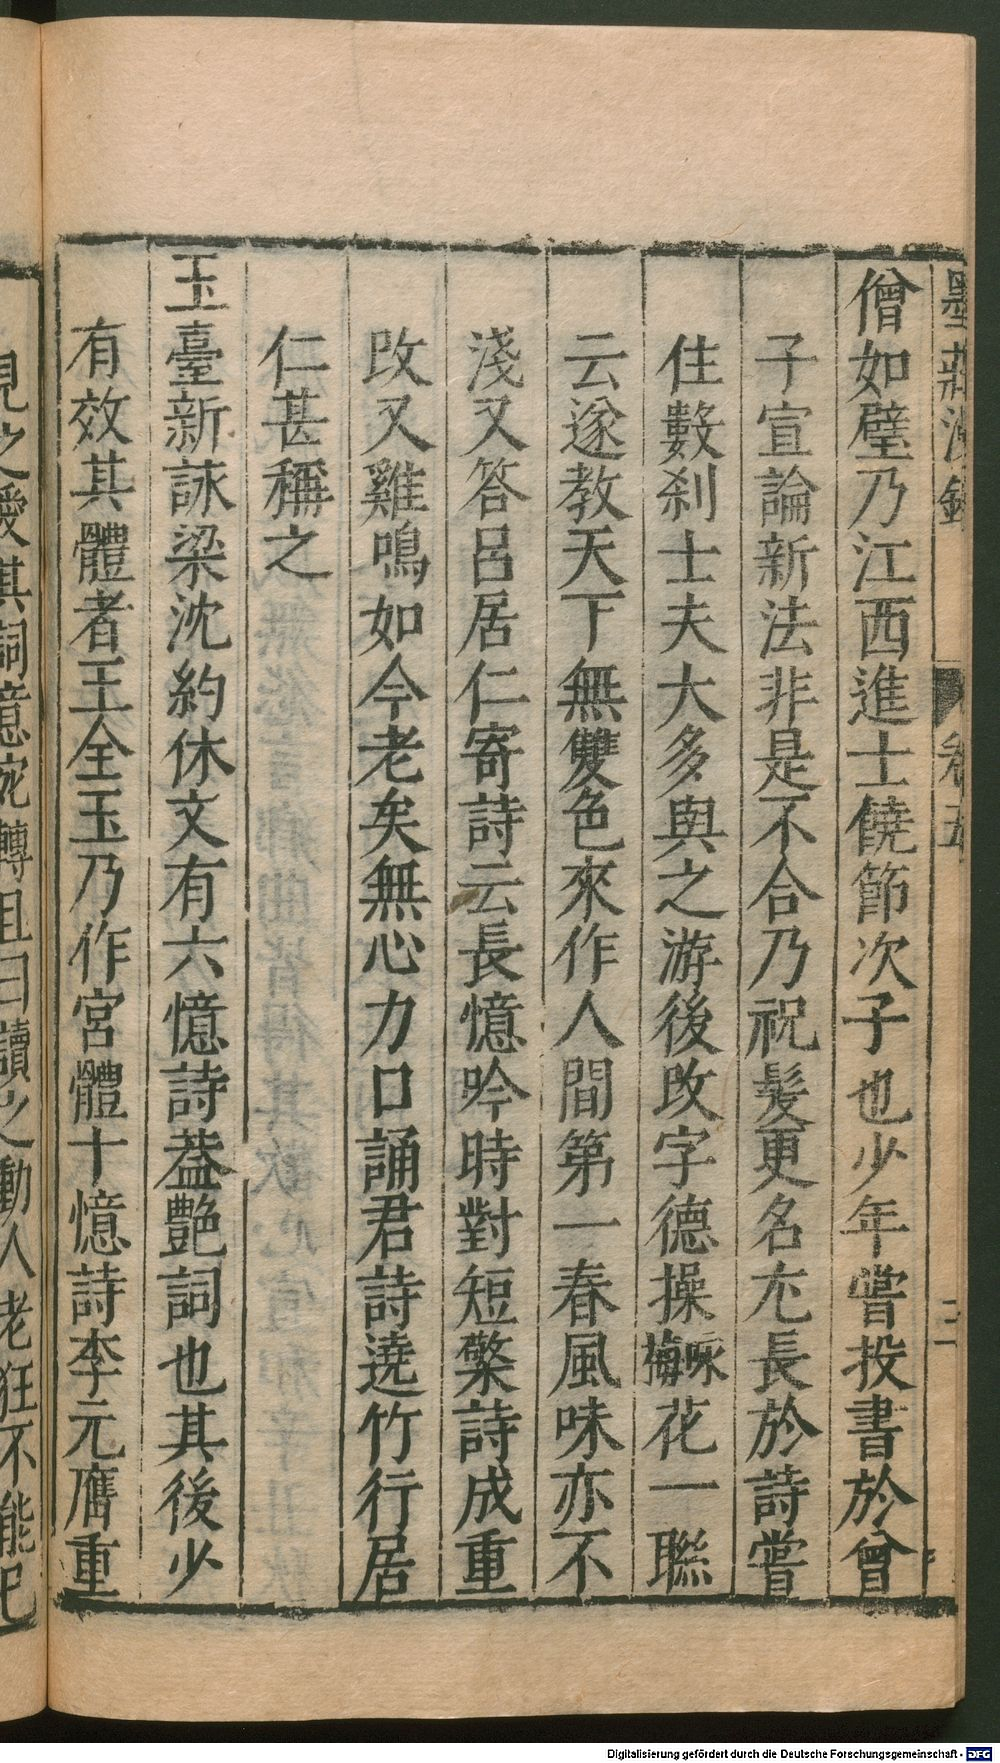 墨莊漫錄 卷五 三
僧如璧乃江西進士饒節次子也少年嘗投書於曾
子宣論新法非是不合乃祝髮更名尢長於詩嘗
住數刹士夫大多與之游後改字德操咏梅花一聯
云遂教天下無雙色來作人間第一春風味亦不
淺又答呂居仁寄詩云長憶吟時對短檠詩成重
改又雞鳴如今老矣無心力口誦君詩遶竹行居
仁甚稱之
玉臺新詠梁沈約休文有六憶詩葢艷詞也其後少
有效其體者王全玉乃作宮體十憶詩李元膺重
見之愛其詞意宛轉且曰讀之動人老狂不能已
Digitalisierung gefördert durch die Deutsche Forschungsgemeinschaft - DFG